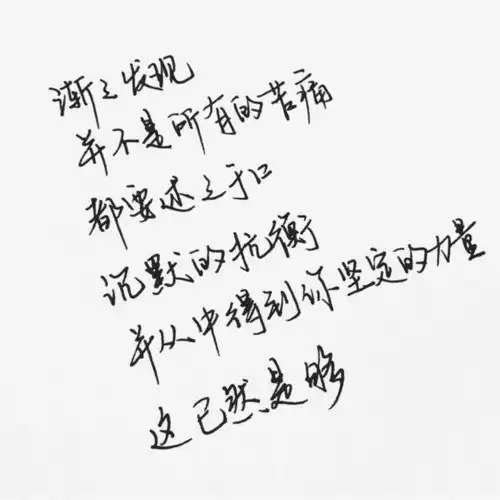 渐之发现
并不是所有的苦痛
都要述之于口
沉默的抗衡
并从中得到你坚定的力量
这已然是够